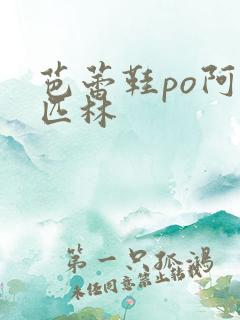 芭蕾鞋po阿
匹林
第一只孤鸿
未经同意禁止转载